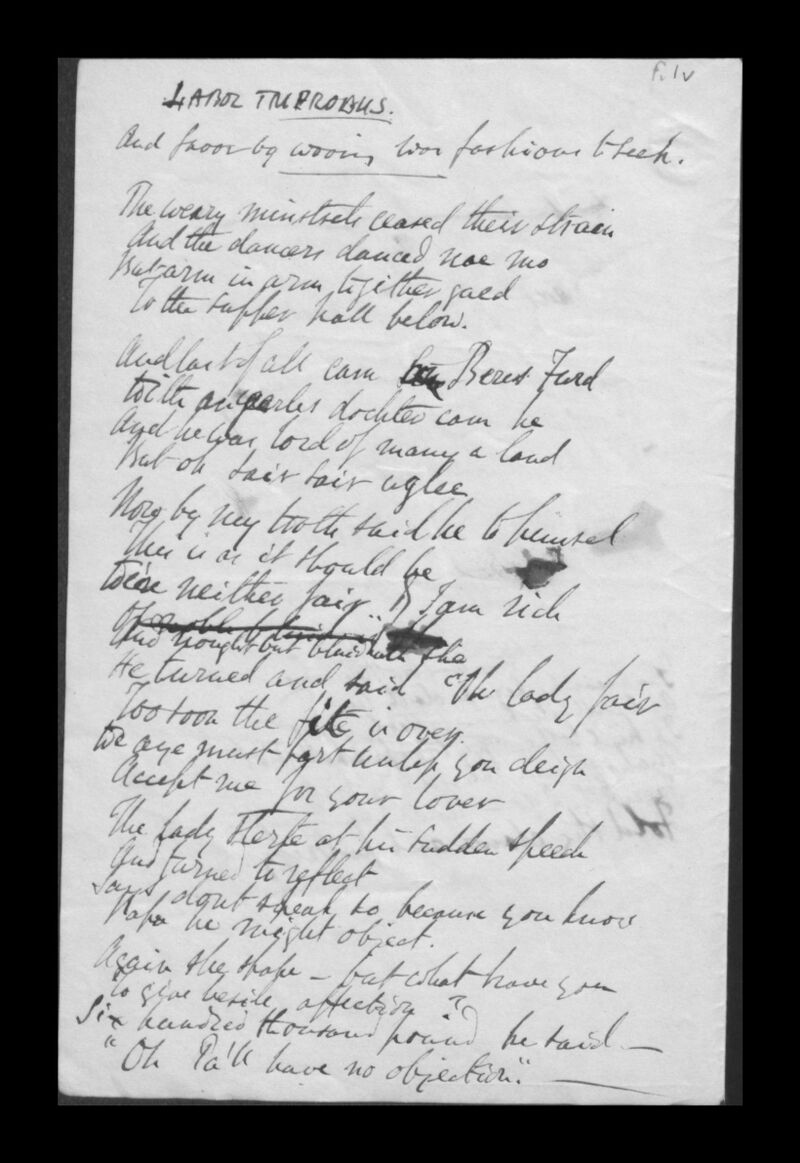 F. 1v
LABOR IMPROBUS.
And favor by wooing was fashious to seek.
The weary minstrels ceased their strain
And the dancers danced nae mo
But arm in arm together gaed
To the supper hall below.
And last of all cam Beres Furd
With an yearles dochter cam he
And he was lord of many a land
But oh sair sair uglee
Now by my troth said he to himsel
This is as it should be
We're neither fair, I am rich
And nought but bluid hath she
He turned and said "Oh lady fair
Too soon the fête is over.
We aye must part unless you deign
Accept me for your lover
The Lady sterte at his sudden speech
And turned to reflect
Says dont speak so because you know
Papa he might object.
Again she spake – but what have you
To give beside affection?
Six hundred thousand pound he said –
"Oh Pa'll have no objection."